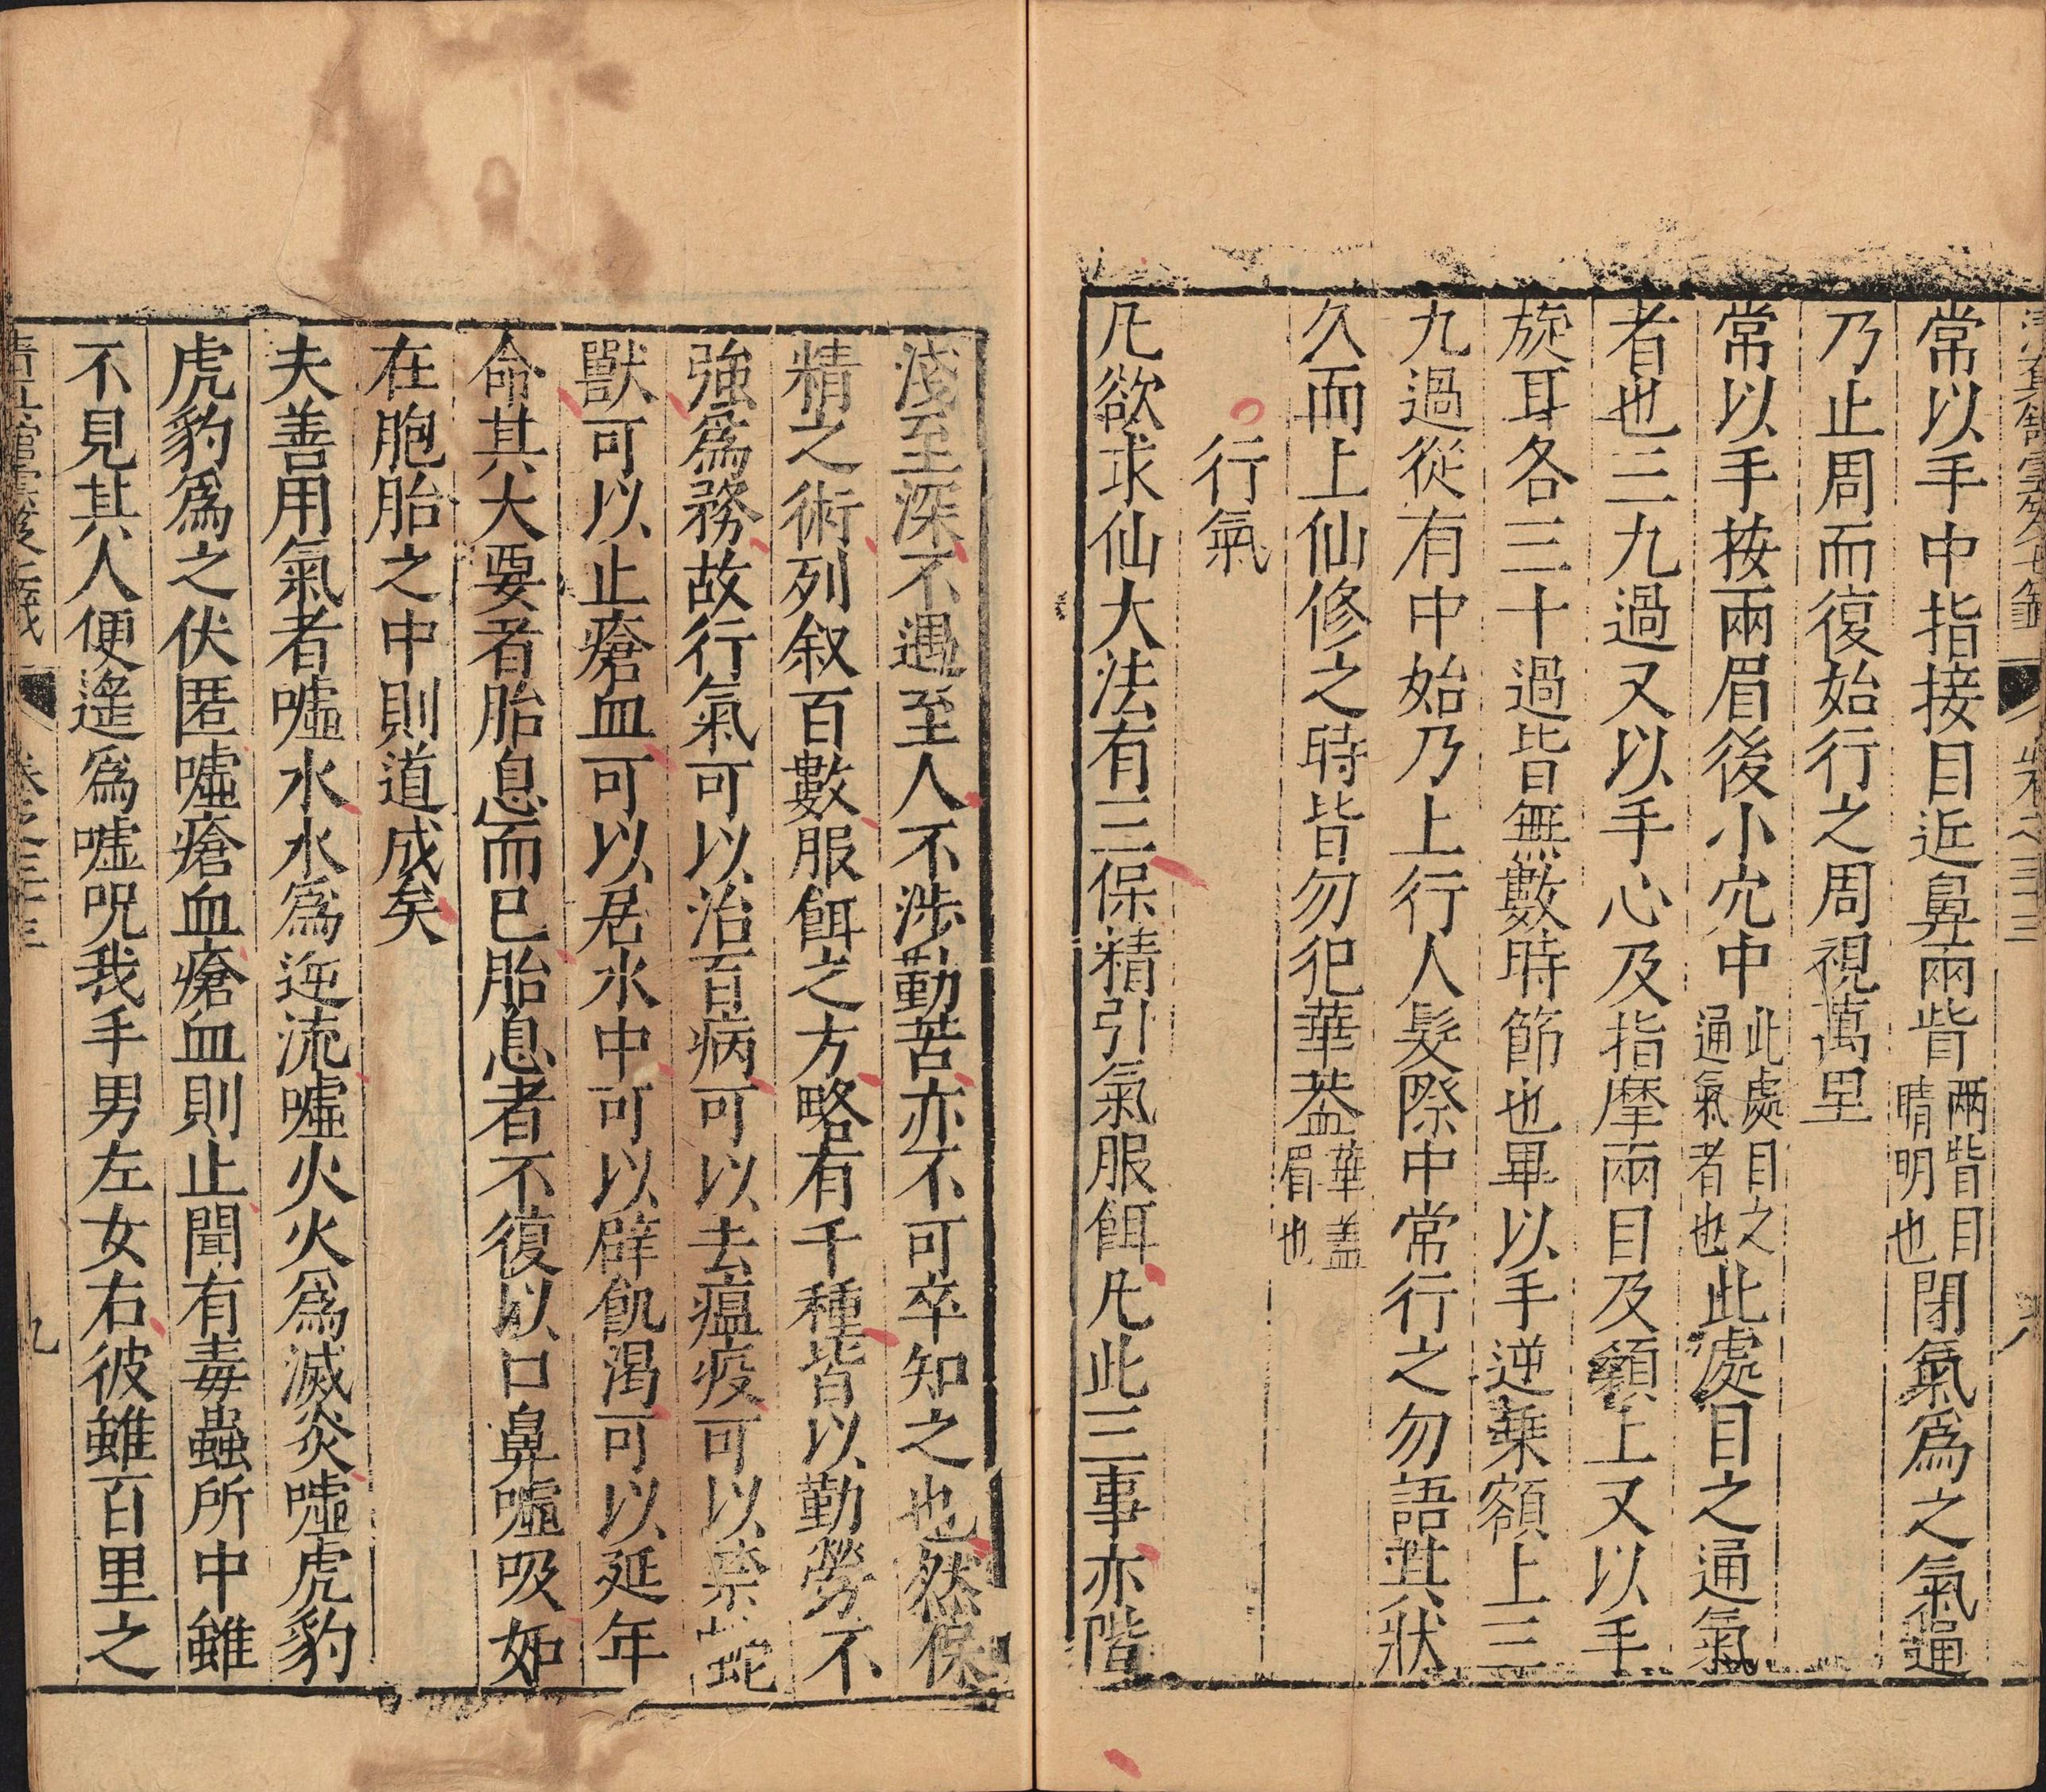 常以手中指接目近鼻兩眥兩眥目晴明也閉氣爲之氣逼
乃止周而復始行之周視萬里
常以手按兩眉後小穴中此處目之通氣者也此處目之通氣
者也三九過又以手心及指摩兩目及額上又以手
旋耳各三十過皆無數時節也畢以手逆乗額上三
九過從有中始乃上行人髮際中常行之勿語其狀
久而上仙修之時皆勿犯華葢華盖眉也
行氣
凡欲求仙大法有三保精引氣服餌凡此三事亦階
淺至深不遇至人不涉勤苦亦不可卒知之也然保
精之術列叙百數服餌之方略有千種皆以勤勞不
強爲務故行氣可以治百病可以去瘟疫可以禁蛇
獸可以止瘡血可以居水中可以辟飢渴可以延年
命其大要者胎息而已胎息者不復以口鼻噓吸如
在胞胎之中則道成矣
夫善用氣者噓水水爲逆流噓火火爲滅炎噓虎豹
虎豹爲之伏匿噓瘡血瘡血則止聞有毒蟲所中雖
不見其人便遙爲噓呪我手男左女右彼雖百里之
卷之三十三
九